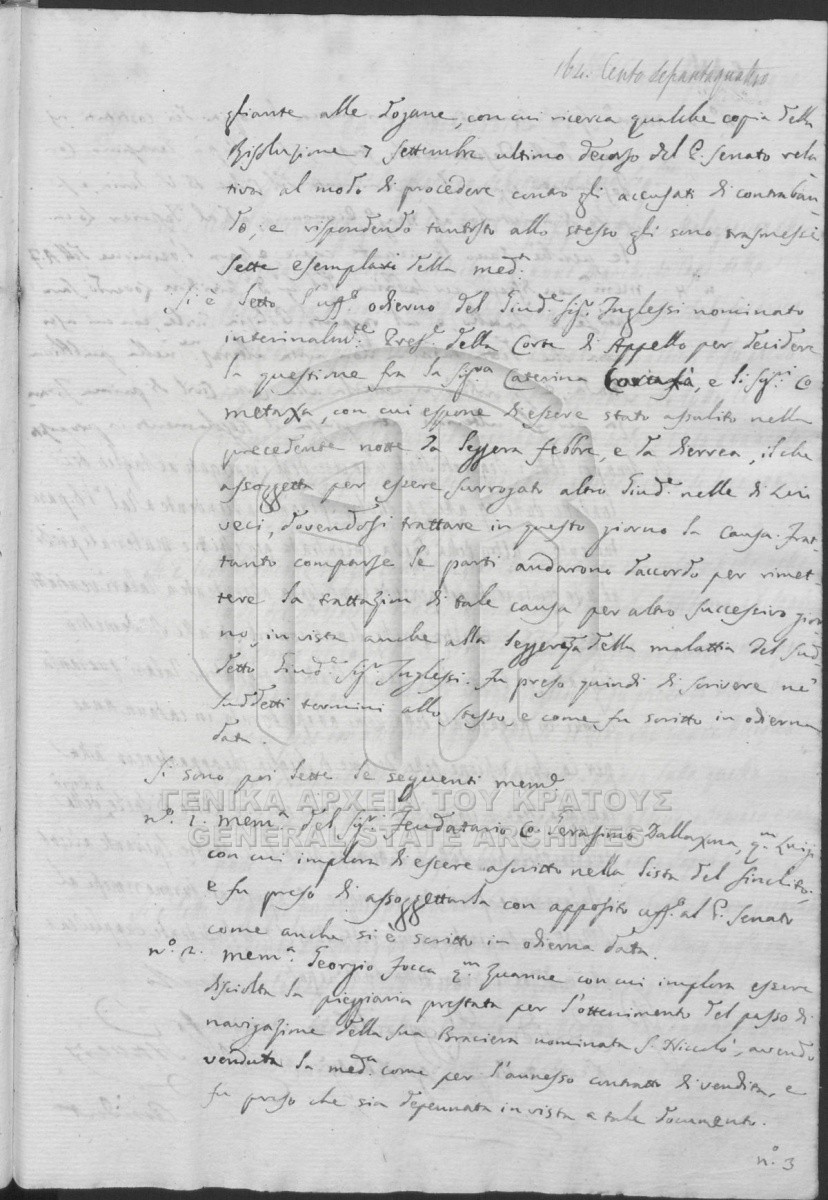 164. Cento sessantaquattro
gliante alle Dogane, con cui ricerca qualche copia della
Risoluzione 7 Settembre ultimo decorso del P. Senato rela
tiva al modo di procedere contro gli accusati di contraban
do, e rispondendo tantosto allo stesso gli sono trasmessi
sette esemplari della med.ª
Si è letto l'uff.º odierno del Giud.e Sig.r Inglessi nominato
interinalm.te Pres.e della Corte di Appello per decidere
la questione fra la Sig.ra Caterina, e li Sig.ri Co
metaxa, con cui espone di essere stato assalito nella
precedente notte da leggera febbre, e da dierrea, il che
assoggetta per essere surrogato altro Giud.e nelle di Lui
veci, dovendosi trattare in questo giorno la causa. Frat
tanto comparse le parti andarono d'accordo per rimet
tere la trattazion di tale causa per altro successivo gior
no, in vista anche alla leggerezza della malattia del sud
detto Giud.e Sig.r Inglessi. Fu preso quindi di scrivere ne'
suddetti termini allo stesso, e come fu scritto in odierna
data.
Si sono poi lette le seguenti mem.e
n.º 1. Mem.ª del Sig.r Feudatario Co. Serafimo Dallaxma, q.m Luigi
con cui implora di essere ascritto nella lista del Sinclito,
e fu preso di assoggettarla con apposito uff.º al P. Senato
come anche si è scritto in odierna data.
n.º 2. Mem.ª Georgio Focca q.m Zuanne con cui implora essere
disciolta la pieggiaria prestata per l'ottenimento del passo di
navigazione della sua Braciera nominata S. Niccolò, avendo
venduta la med.ª come per l'annesso contratto di vendita, e
fu preso che sia depennata in vista a tale documento.
n.º 3
ΓΕΝΙΚΑ ΑΡΧΕΙΑ ΤΟΥ ΚΡΑΤΟΥΣ
GENERAL STATE ARCHIVES